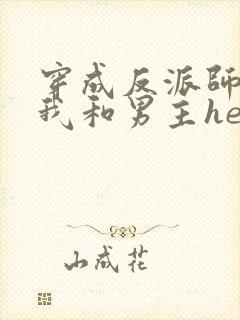 穿成反派師
我和男主he
山成花